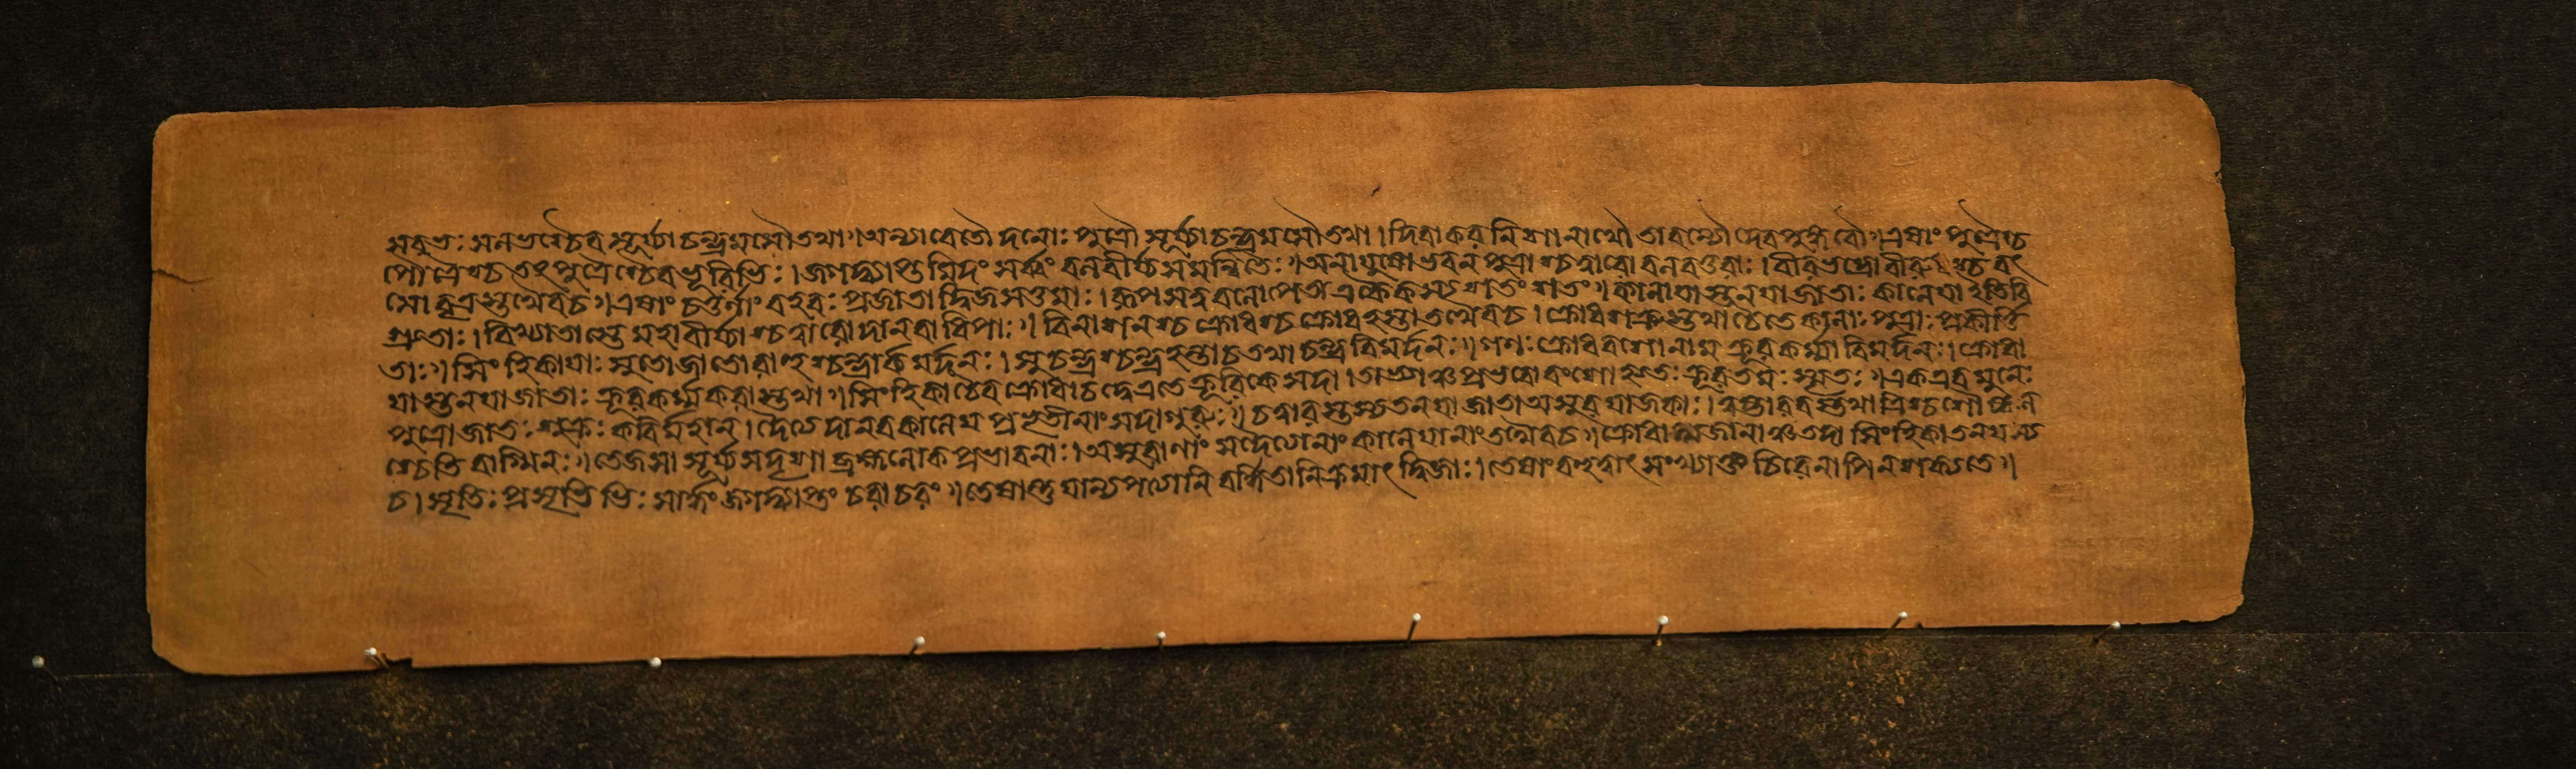 সবুভঃ সনভশ্চৈব সূর্য্যা চন্দ্রমসৌ তথা ৷৷ অন্যাবেতৌ দনোঃ পুত্রৌ সূর্য্যা চন্দ্রমসৌ তথা । দিবাকর নিশানাথৌ তাবন্যৌ দেবপুঙ্গবৌ ৷৷ এষাং পুত্রৈশ্চ
পৌত্রৈশ্চ তৎপুত্রৈশ্চৈব ভূরিভিঃ । জগদ্ব্যাপ্তমিদং সর্ব্বং বনবীর্য্য সমন্বিতৈঃ ৷৷ অনাযুষোভবন পুত্রাশ্চত্বারো বনবত্তরাঃ । বীরভদ্রো বীরশ্চৈবং
সো বৃত্রস্তথৈবচ ৷৷ এষাং চর্ত্তুণাং বহবঃ প্রজাতা দ্বিজসত্তমাঃ । রূপসত্ববনোপেতা একৈকস্য শতং শতং ৷৷ কানাযাস্তনযা জাতাঃ কানেযা ইতিবি
শ্রুতাঃ । বিখ্যাতাস্তে মহাবীর্য্যাশ্চত্বারো দানবাধিপাঃ ৷৷ বিনাশনশ্চ ক্রোধশ্চ ক্রোধহন্তা তথৈবচ । ক্রোধশক্রস্তথা চৈতে কানাঃ পুত্রাঃ প্রকীর্ত্তি
তাঃ ৷৷ সিংহিকাযাঃ সুতো জাতো রাহুশ্চন্দ্রার্ক মর্দ্দনঃ । সুচন্দ্রশ্চন্দ্রহন্তা চ তথা চন্দ্রবিমর্দনঃ ৷৷ গণঃ ক্রোধবশো নাম ক্রূরকর্ম্মা বিমর্দনঃ । ক্রোধা
যাস্তনযা জাতাঃ ক্রূরকর্ম্মকরাস্তথা ৷৷ সিংহিকা চৈব ক্রোধা চ দ্বেএতে ক্রূরিকে সদা । তাভ্যাঞ্চ প্রভবো বংশো ক্রূরতমঃ স্মৃতঃ ৷৷ একএব মুনেঃ
পুত্রো জাতঃ শুক্রঃ কবির্মহান । দৈত্য দানব কানেয প্রভৃতীনাং সদা গুরুঃ ৷৷ চত্বারস্তস্য তনযা জাতা অসুর যাজকাঃ । ত্বষ্টারবস্তথাত্রিশ্চ
শ্চেতি বাগ্মিনঃ ৷৷ তেজসা সূর্য্যসদৃশা ব্রহ্মনোক প্রভাবনাঃ । অসুরাণাং সদৈত্যেনাং কানেযানাং তথৈবচ ৷৷ ক্রোধাত্মজানাঞ্চ তদা সিংহিকা তনযস্য
চ । সূতিঃ প্রসূতিভিঃ সার্দ্ধং জগদ্ব্যাপ্তং চরাচরং ৷৷ তেষান্তু যান্যপত্যেনি বর্দ্ধিতানি ক্রমাৎ দ্বিজাঃ । তেষাং বহুত্বাৎ সংখ্যাতুং চিরেনাপি ন শক্যতে ৷৷